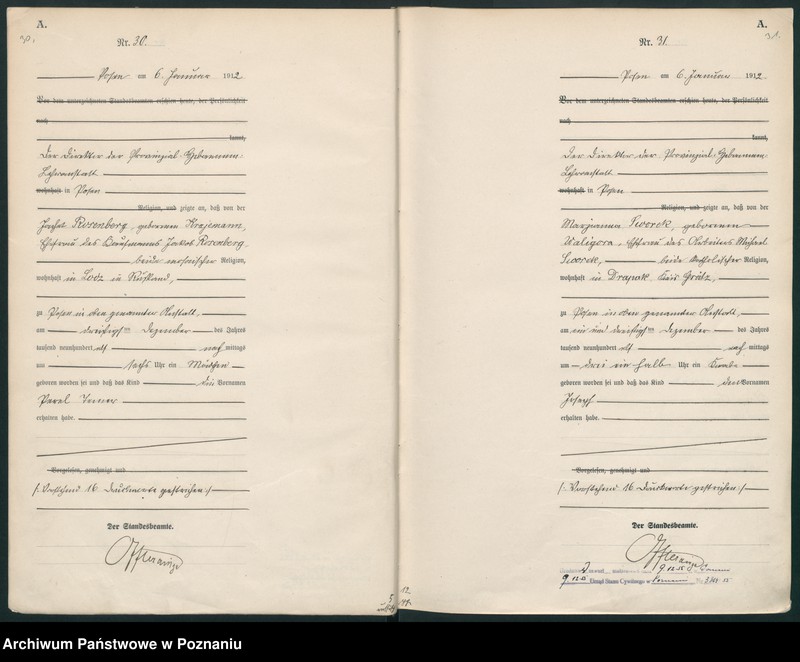 A.
30.
Nr. 30.
Posen am 6. Januar 1912
Vor dem unterzeichneten Standesbeamten erschien heute, der Persönlichkeit
nach
kannt,
Der Direktor der Provinzial-Hebammen-
Lehranstalt
wohnhaft in Posen
Religion, und zeigte an, daß von der
Rosenberg, geborenen
Ehefrau des Kaufmanns Jakob Rosenberg
beide mosaischer Religion,
wohnhaft in Lodz in Rußland,
zu Posen in oben genannter Anstalt,
am dreißigsten Dezember des Jahres
tausend neunhundert elf nachmittags
um sechs Uhr ein Mädchen
geboren worden sei und daß das Kind die Vornamen
erhalten habe.
Vorgelesen, genehmigt und
/: Vorstehend 16 Druckworte gestrichen :/
Der Standesbeamte.
A.
31.
Nr. 31.
Posen am 6. Januar 1912
Vor dem unterzeichneten Standesbeamten erschien heute, der Persönlichkeit
nach
kannt,
Der Direktor der Provinzial-Hebammen-
Lehranstalt
wohnhaft in Posen
Religion, und zeigte an, daß von der
Marjanna geborenen
Waligora, Ehefrau des Arbeiters Michael
beide katholischer Religion,
wohnhaft in Drapak, Kreis Grätz,
zu Posen in oben genannter Anstalt,
am ein und dreißigsten Dezember des Jahres
tausend neunhundert elf nachmittags
um drei ein halb Uhr ein Knabe
geboren worden sei und daß das Kind den Vornamen
Joseph
erhalten habe.
Vorgelesen, genehmigt und
/: Vorstehend 16 Druckworte gestrichen :/
Der Standesbeamte.
Urząd Stanu Cywilnego w Poznaniu
Archiwum Państwowe w Poznaniu